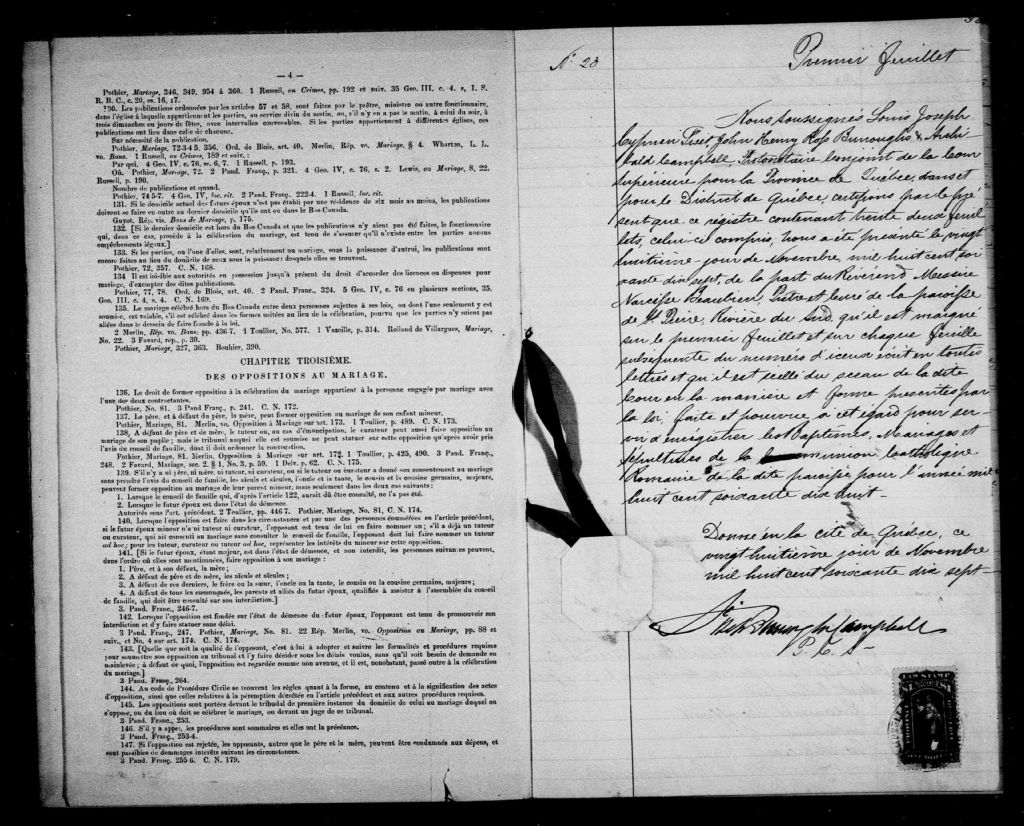 — 4 —
Pothier, Mariage, 346, 349, 954 à 360. 1 Russell, on Crimes, pp. 192 et suiv. 35 Geo. III. c. 4. s, 1. S.
R. B. C., c. 20, ss. 16, 17.
130. Les publications ordonnées par les articles 57 et 58, sont faites par le prêtre, ministre ou autre fonctionnaire,
dans l'église à laquelle appartiennent les parties, au service divin du matin, ou, s'il n'y en a pas le matin, à celui du soir, à
trois dimanches ou jours de fêtes, avec intervalles convenables. Si les parties appartiennent à différentes églises, ces
publications ont lieu dans celle de chacune.
Sur nécessité de la publication.
Pothier, Mariage, 72-3-4 5, 356. Ord. de Blois, art. 40. Merlin, Rép. vo. Mariage, § 4. Wharton, L. L.
vo. Bans. 1 Russell, on Crimes, 189 et suiv. :
Par qui. 4 Geo. IV, c. 76, ss. 6, 7. 1 Russell, p. 193.
Où. Pothier, Mariage, 72. 2 Pand. Franç., p. 321. 4 Geo. IV, c. 76, s. 2. Lewis, on Mariage, 8, 22.
Russell, p. 190.
Nombre de publications et quand.
Pothier, 74 5-7. 4 Geo. IV, loc. cit. 2 Pand. Franç., 222-4. 1 Russell, loc. cit.
131. Si le domicile actuel des futurs époux n'est pas établi par une résidence de six mois au moins, les publications
doivent se faire en outre au dernier domicile qu'ils ont eu dans le Bas-Canada.
Guyot, Rép. vis. Bans de Mariage, p. 175.
132. [Si le dernier domicile est hors du Bas Canada et que les publications n'y aient pas été faites, le fonctionnaire
qui, dans ce cas, procède à la célébration du mariage, est tenu de s'assurer qu'il n'existe entre les parties aucuns
empêchements légaux.]
133. Si les parties, ou l'une d'elles, sont, relativement au mariage, sous la puissance d'autrui, les publications sont
encore faites au lieu du domicile de ceux sous la puissance desquels elles se trouvent.
Pothier, 72, 357. C. N. 168.
134 Il est loisible aux autorités en possession jusqu'à présent du droit d'accorder des licences ou dispenses pour
mariage, d'exempter des dites publications.
Pothier, 77, 78. Ord. de Blois, art. 40. 2 Pand. Franc., 324. 5 Geo. IV, c. 76 en plusieurs sections, 35.
Geo. III. c. 4, s. 4. C. N. 169.
135. Le mariage célébré hors du Bas Canada entre deux personnes sujettes à ses lois, ou dont l'une seulement y est
soumise, est valable, s'il est célébré dans les formes usitées au lieu de la célébration, pourvu que les parties n'y soient pas
allées dans le dessein de faire fraude à la loi.
2 Merlin, Rép. vo. Bans, pp. 436-7, 1 Toullier, No. 577. 1 Vazeille, p. 314. Rolland de Villargues, Mariage,
No. 22. 3 Favard, rép., p. 30.
Pothier, Mariage, 327, 363. Bouhier, 390.
CHAPITRE TROISIÈME.
DES OPPOSITIONS AU MARIAGE.
136. Le droit de former opposition à la célébration du mariage appartient à la personne engagée par mariage avec
l'une des deux contractantes.
Pothier, No. 81. 3 Pand Franç., p. 241. C. N. 172.
137. Le père, et à défaut du père, la mère, peut former opposition au mariage de son enfant mineur.
Pothier, Mariage, 81. Merlin, vo. Opposition à Mariage sur art. 173. 1 Toullier, p. 489. C. N. 173.
138. A défaut de père et de mère, le tuteur ou, au cas d'émancipation, le curateur peut aussi faire opposition au
mariage de son pupile; mais le tribunal auquel elle est soumise ne peut statuer sur cette opposition qu'après avoir pris
l'avis du conseil de famille, dont il doit ordonner la convocation.
Pothier, Mariage, 81. Merlin, Opposition à Mariage sur art. 172. 1 Toullier, p. 425, 490. 3 Pand. Franç.,
248. 2 Favard, Mariage, sec. 2. § 1, No. 3, p. 59. 1 Delv. p. 62. C. N. 175.
139. S'il n'y a ni père, ni mère, ni tuteur, ni curateur, ou si le tuteur ou curateur a donné son consentement au mariage
sans prendre l'avis du conseil de famille, les aïeuls et aïeules, l'oncle et la tante, le cousin et la cousine germains, majeurs,
peuvent former opposition au mariage de leur parent mineur, mais seulement dans les deux cas suivants:
1. Lorsque le conseil de famille qui, d'après l'article 122, aurait dû être consulté, ne l'a pas été.
2. Lorsque le futur époux est dans l'état de démence.
Autorités sous l'art. précédent. 2 Toullier, pp. 446-7. Pothier, Mariage, No. 81, C. N. 174.
140. Lorsque l'opposition est faite dans les circonstances et par une des personnes énumérées en l'article précédent,
si le futur époux mineur n'a ni tuteur ni curateur, l'opposant est tenu de lui en faire nommer un; s'il a déjà un tuteur
ou curateur, qui ait consenti au mariage sans consulter le conseil de famille, l'opposant doit lui faire nommer un tuteur
ad hoc; pour les tuteur, curateur ou tuteur ad hoc, représenter les intérêts du mineur sur cette opposition.
141. [Si le futur époux, étant majeur, est dans l'état de démence, et non interdit, les personnes suivantes peuvent,
dans l'ordre où elles sont mentionnées, faire opposition à son mariage :
1. Père, et à son défaut, la mère;
2. A défaut de père et de mère, les aïeuls et aïeules;
3. A défaut de ces derniers, le frère ou la sœur, l'oncle ou la tante, le cousin ou la cousine germains, majeurs;
4. A défaut de tous les susnommés, les parents et alliés du futur époux, qualifiés à assister à l'assemblée du conseil
de famille, qui doit être consulté sur son interdiction.]
3. Pand. Franç., 246-7.
142. Lorsque l'opposition est fondée sur l'état de démence du futur époux, l'opposant est tenu de promouvoir son
interdiction et d'y faire statuer sans délai.
3 Pand. Franç., 247. Pothier, Mariage, No. 81. 22 Rép. Merlin, vo. Opposition au Mariage, pp. 88 et
suiv., et No. 4 sur art. 174. C. N. 174.
143. [Quelle que soit la qualité de l'opposant, c'est à lui à adopter et suivre les formalités et procédures requises
pour soumettre son opposition au tribunal et l'y faire décider sous les délais voulus, sans qu'il soit besoin de demande en
mainlevée; à défaut de quoi, l'opposition est regardée comme non avenue, et il est, nonobstant, passé outre à la célébration
du mariage.]
3 Pand. Franç., 264.
144. Au code de Procédure Civile se trouvent les règles quant à la forme, au contenu et à la signification des actes
d'opposition, ainsi que celles relatives à la péremption décrétée en l'article précédent et aux autres procédures requises.
145. Les oppositions sont portées devant le tribunal de première instance du domicile de celui au mariage duquel on
s'oppose, ou du lieu où doit se célébrer le mariage, ou devant un juge de ce tribunal.
3 Pand. Franç., 253.
146. S'il y a appel, les procédures sont sommaires et elles ont la préséance.
3 Pand. Franç., 253-4.
147. Si l'opposition est rejetée, les opposants, autres que le père et la mère, peuvent être condamnés aux dépens, et
sont passibles de dommages intérêts suivant les circonstances.
3 Pand. Franç. 255 6. C. N. 179.
No 23
Premier feuillet
Nous soussignés Louis Joseph
Cyprien Fiset, John Henry Ross Burroughs & Archi
bald Campbell, Protonotaire Conjoint de la Cour
Supérieure pour la Province de Québec, dans et
pour le District de Québec, certifions par le pré
sent que ce registre contenant trente deux feuil
lets, celui-ci compris, nous a été présenté le vingt
huitième jour de Novembre, mil huit cent soi
xante dix sept, de la part du Révérend Messire
Narcisse Beaubien, Prêtre et Curé de la paroisse
de St Pierre, Rivière du Sud, qu'il est marqué
sur le premier feuillet et sur chaque feuille
subséquente du numéro d'iceux écrit en toutes
lettres et qu'il est scellé du sceau de la dite
Cour en la manière et forme prescrites par
la loi, faite et pourvue à cet égard pour ser-
vir d'enregistrer les Baptêmes, Mariages et
Sépultures de la Communion Catholique
Romaine de la dite paroisse pour l'année mil
huit cent soixante dix huit—
Donné en la cité de Québec, ce
vingt huitième jour de Novembre
mil huit cent soixante dix sept—
Fiset Burroughs Campbell
P. C. S—
LAW STAMP